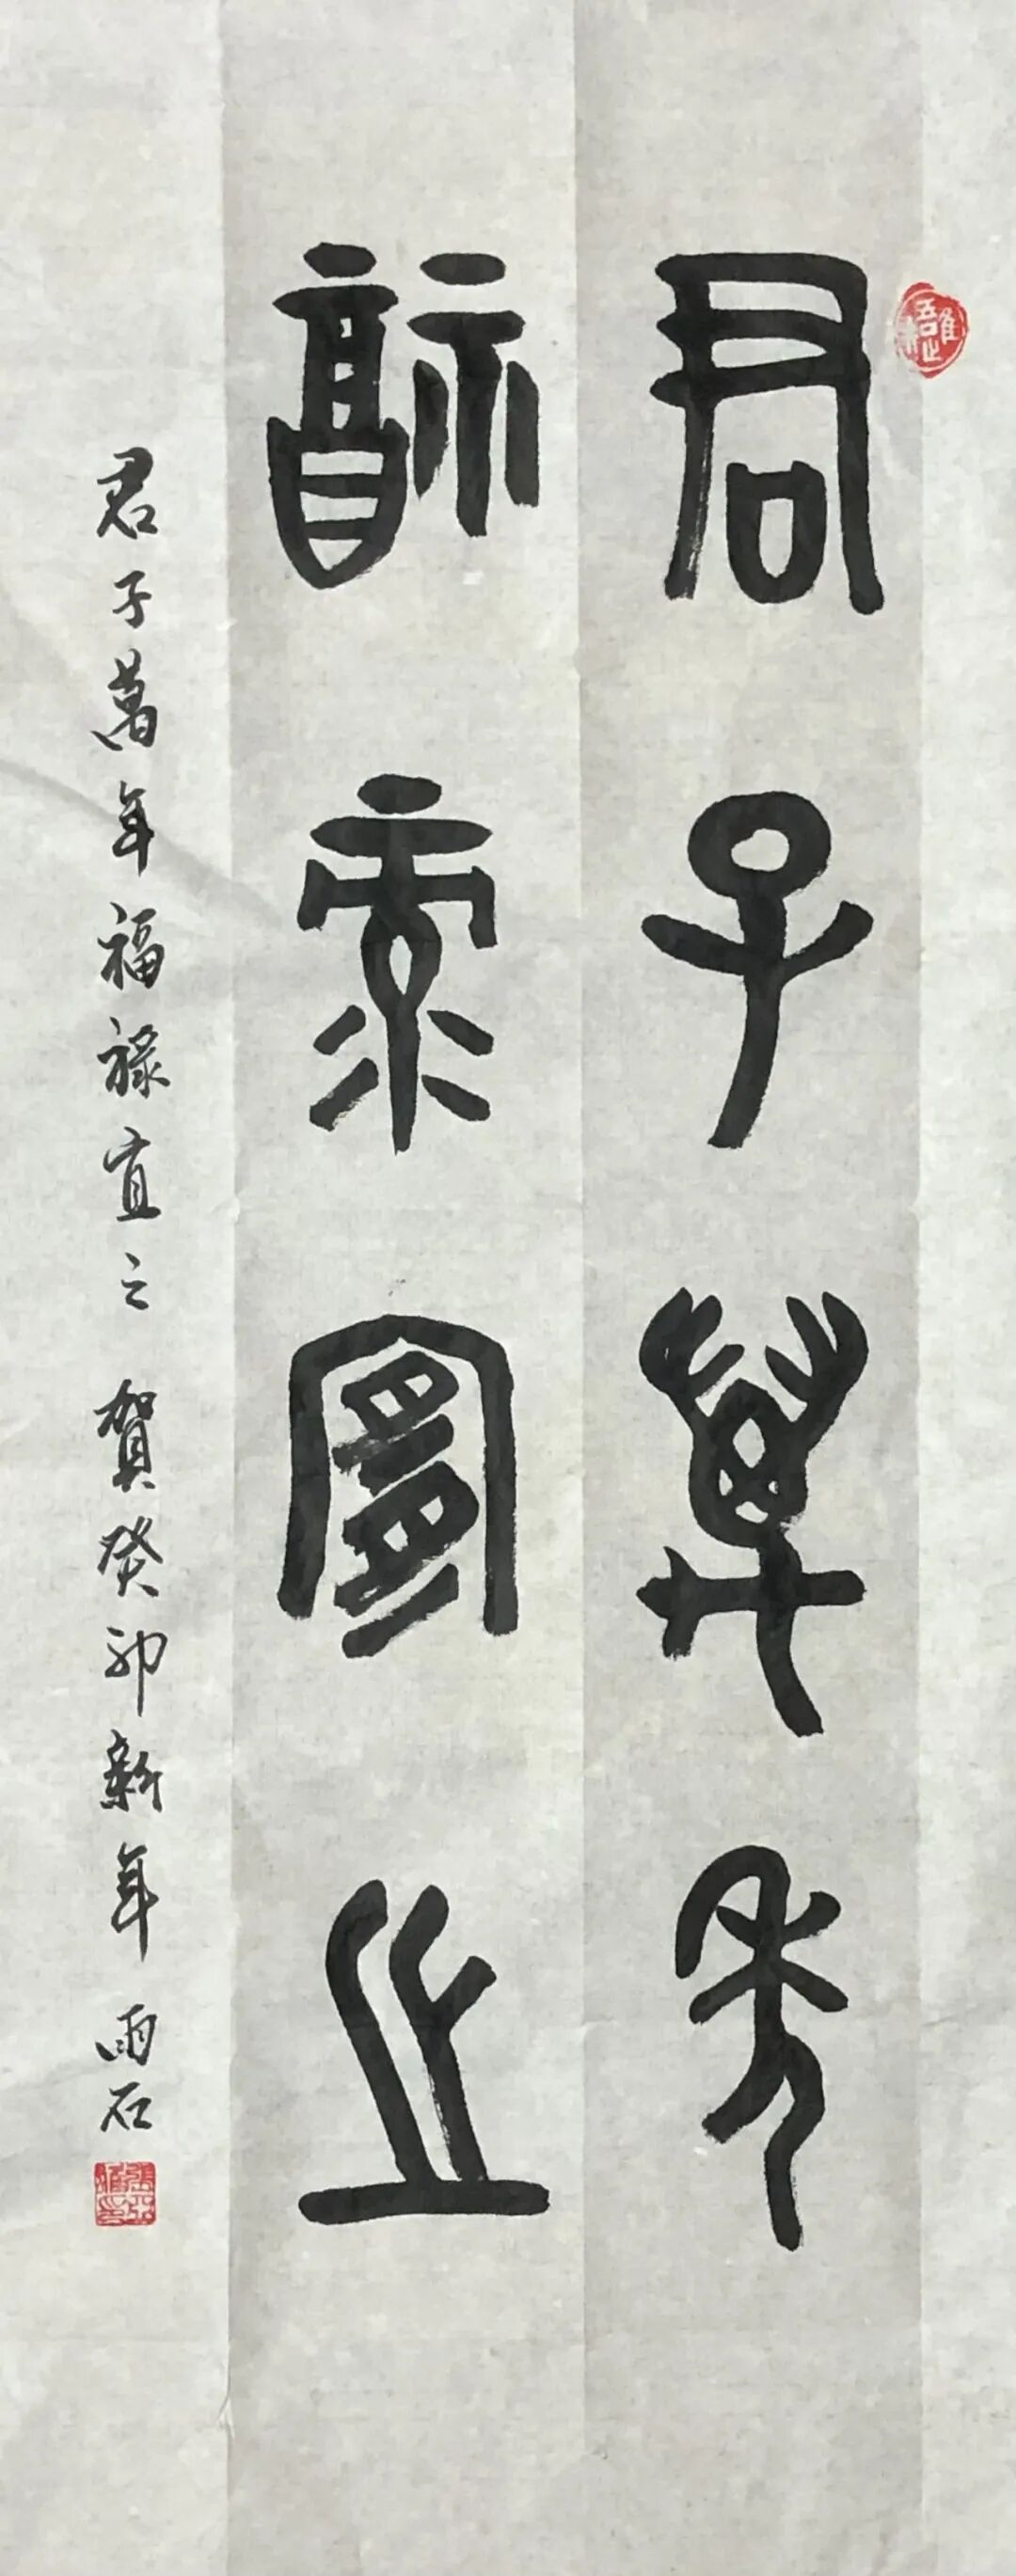 君子萬年
福祿宜之
君子萬年福祿宜之 賀癸卯新年 雨石